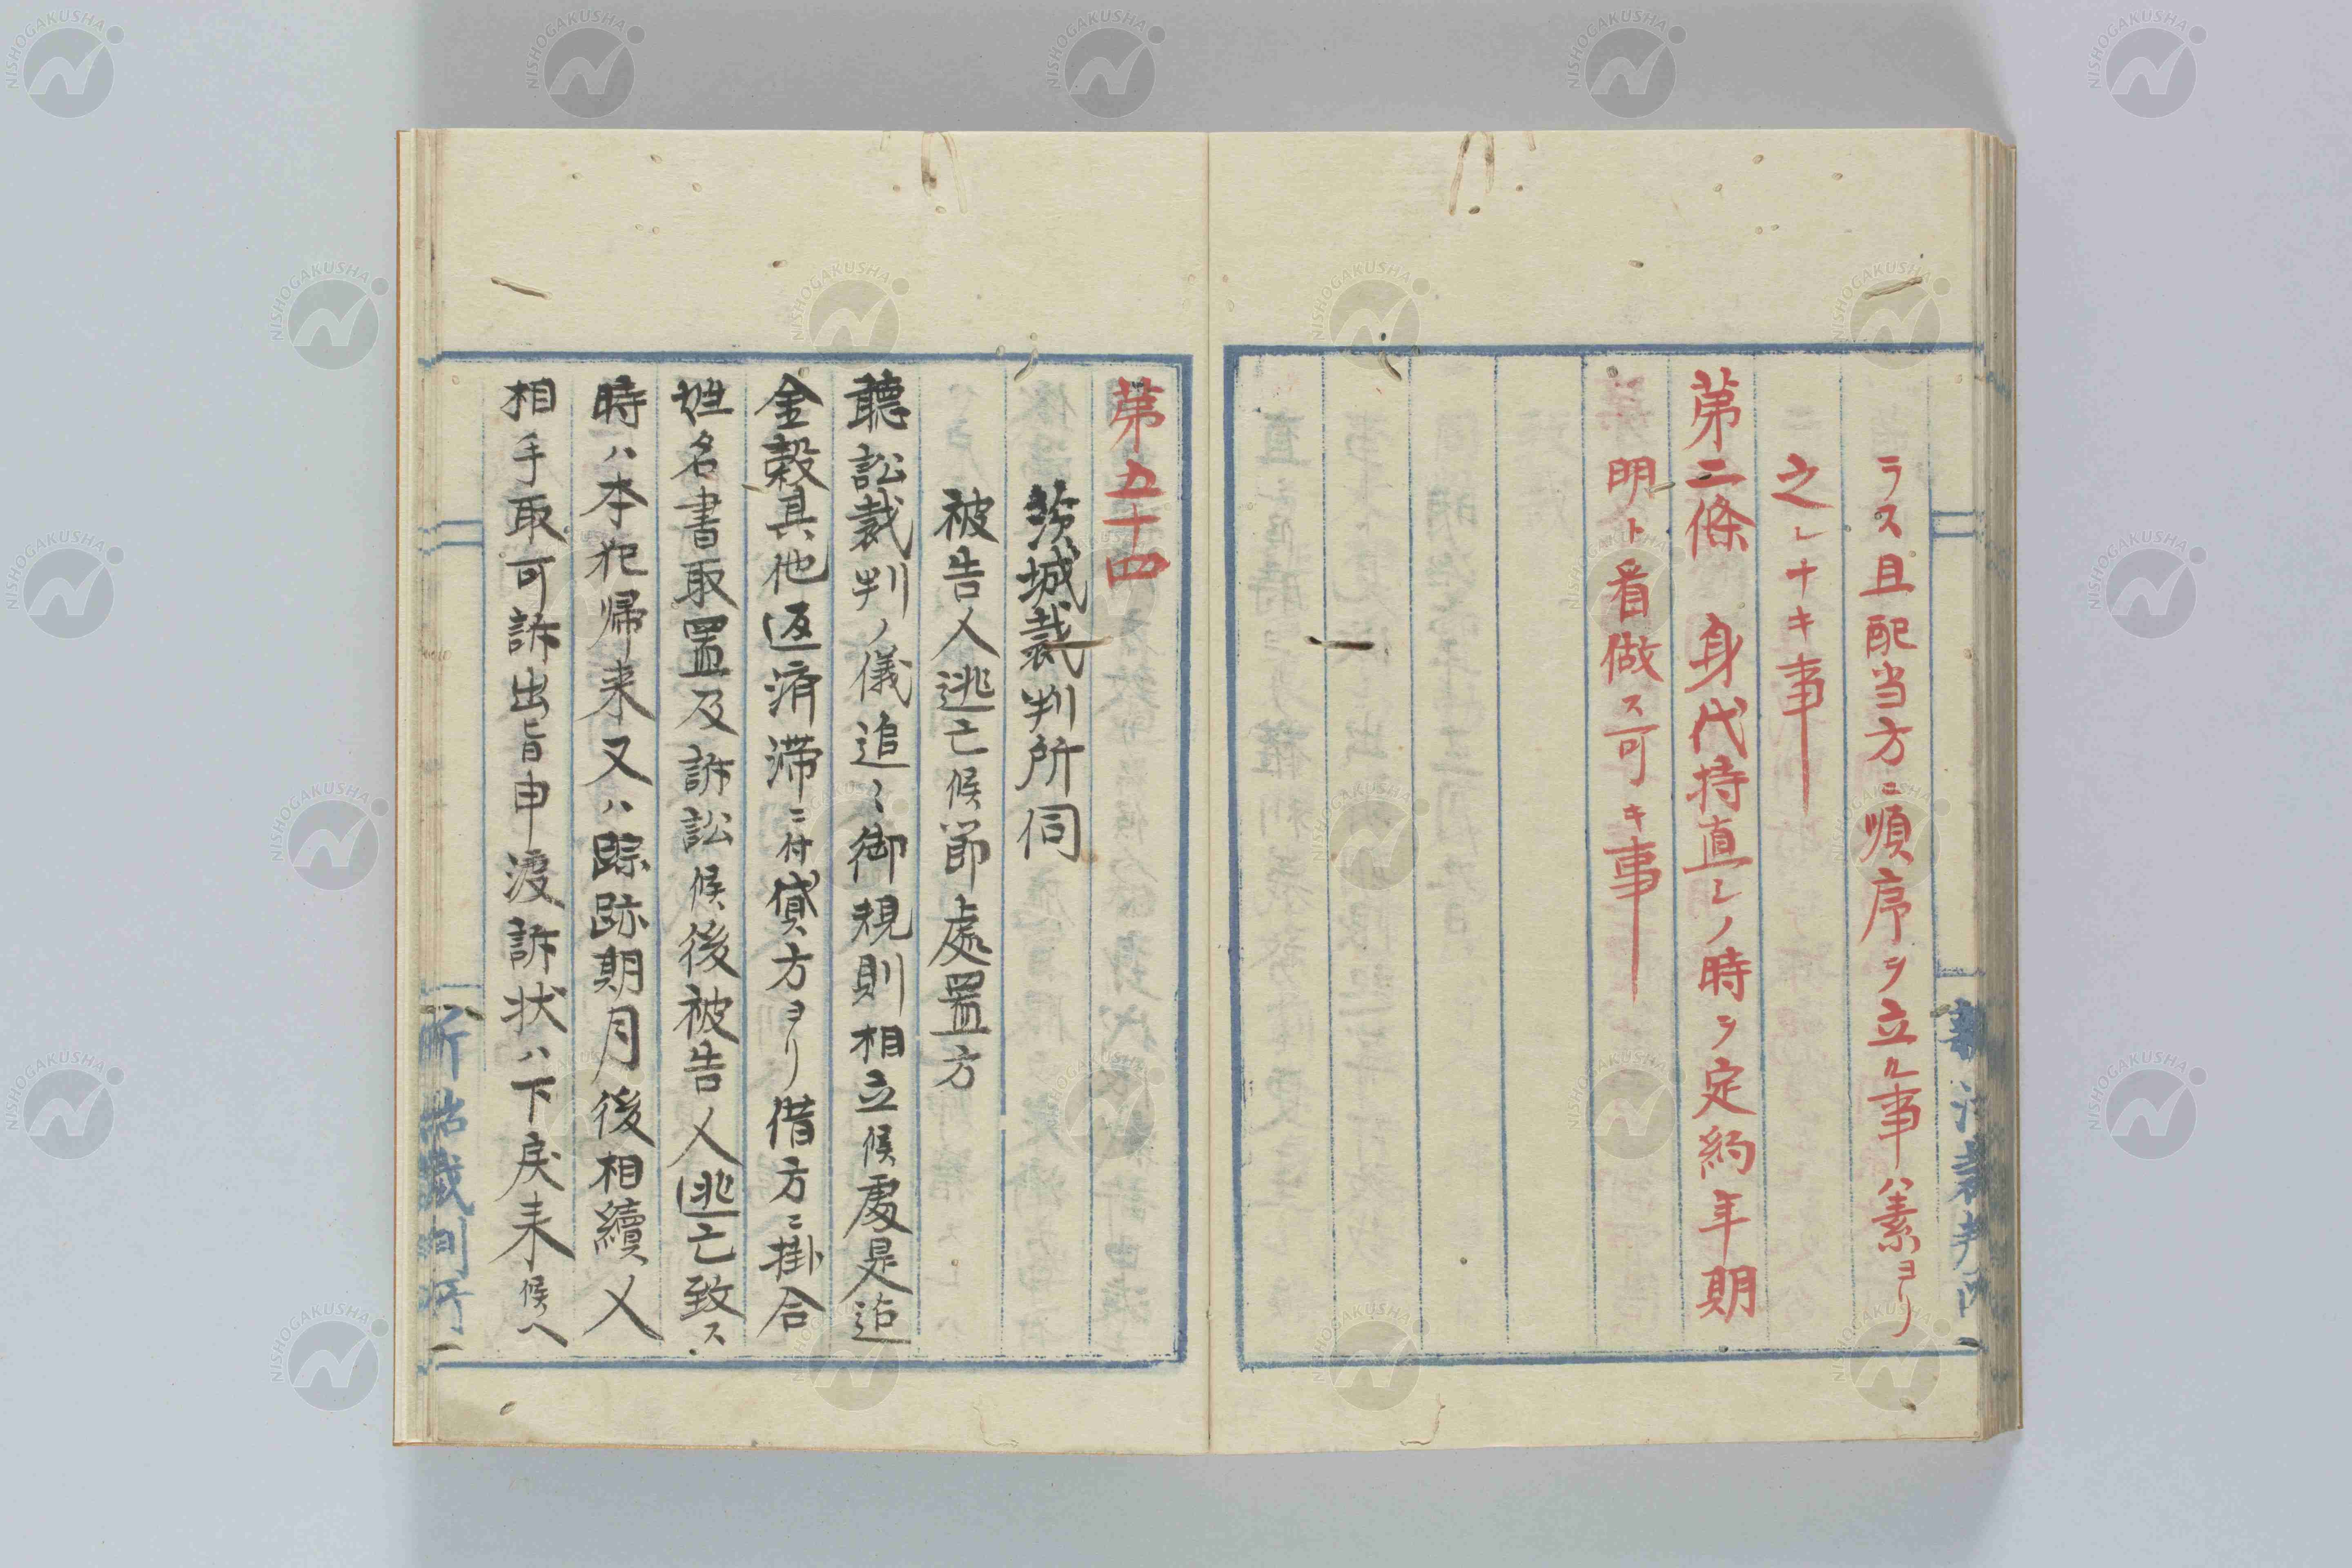 ラス且配当方ニ順序ヲ立ル事ハ素ヨリ
之レナキ事
第二條 身代持直レノ時ヲ定約年期
明ト看做ス可キ事
第五十四
茨城裁判所伺
被告人逃亡候節處置方
聽訟裁判ノ儀追〻御規則相立候處是迠
金穀其他返済滞ニ付貸方ヨリ借方ニ掛合
姓名書取置及訴訟候後被告人逃亡致ス
時ハ本犯帰来又ハ踪跡期月後相續人
相手取可訴出旨申渡訴状ハ下戻来候へ
NISHOGAKUSHA